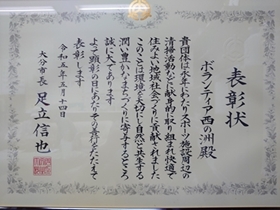 表彰状
ボランティア西の洲殿
貴団体は永年にわたりスポーツ施設周辺の
清掃活動などに献身的に取り組まれ快適で
住みよい地域社会づくりに貢献されました
このことは環境を大切に自然と共生する
潤い豊かなまちづくりに寄与するところ
誠に大であります
よって顕彰の日にあたりその善行をたたえて
表彰します
令和五年五月十四日
大分市長 足立信也